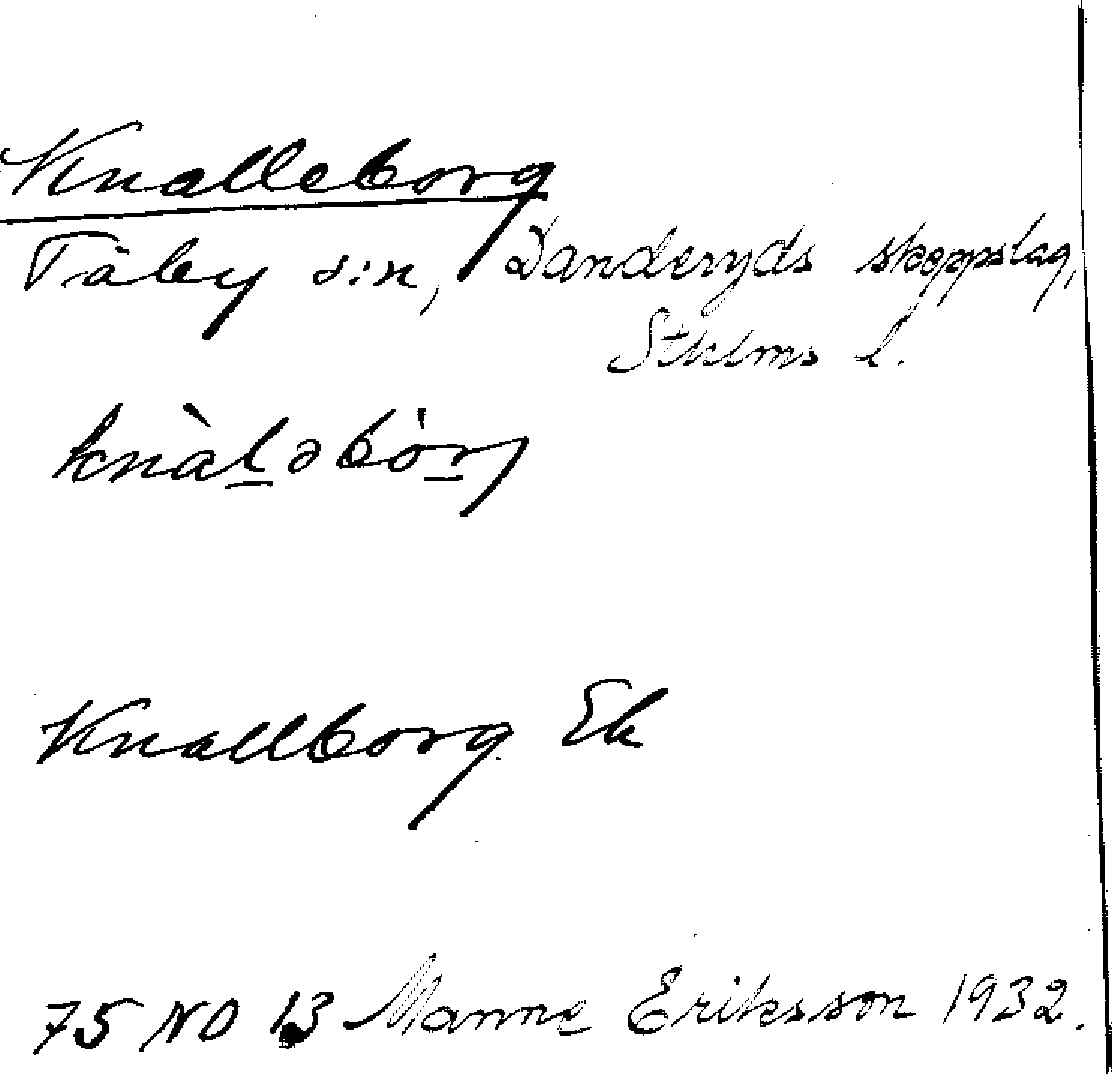 Knalleborg
Täby s:n, Danderyds skeppslag,
Sthlms l.
knàl̲əbȯr̲j
Knallborg Ek
75 NO 13 Manne Eriksson 1932.